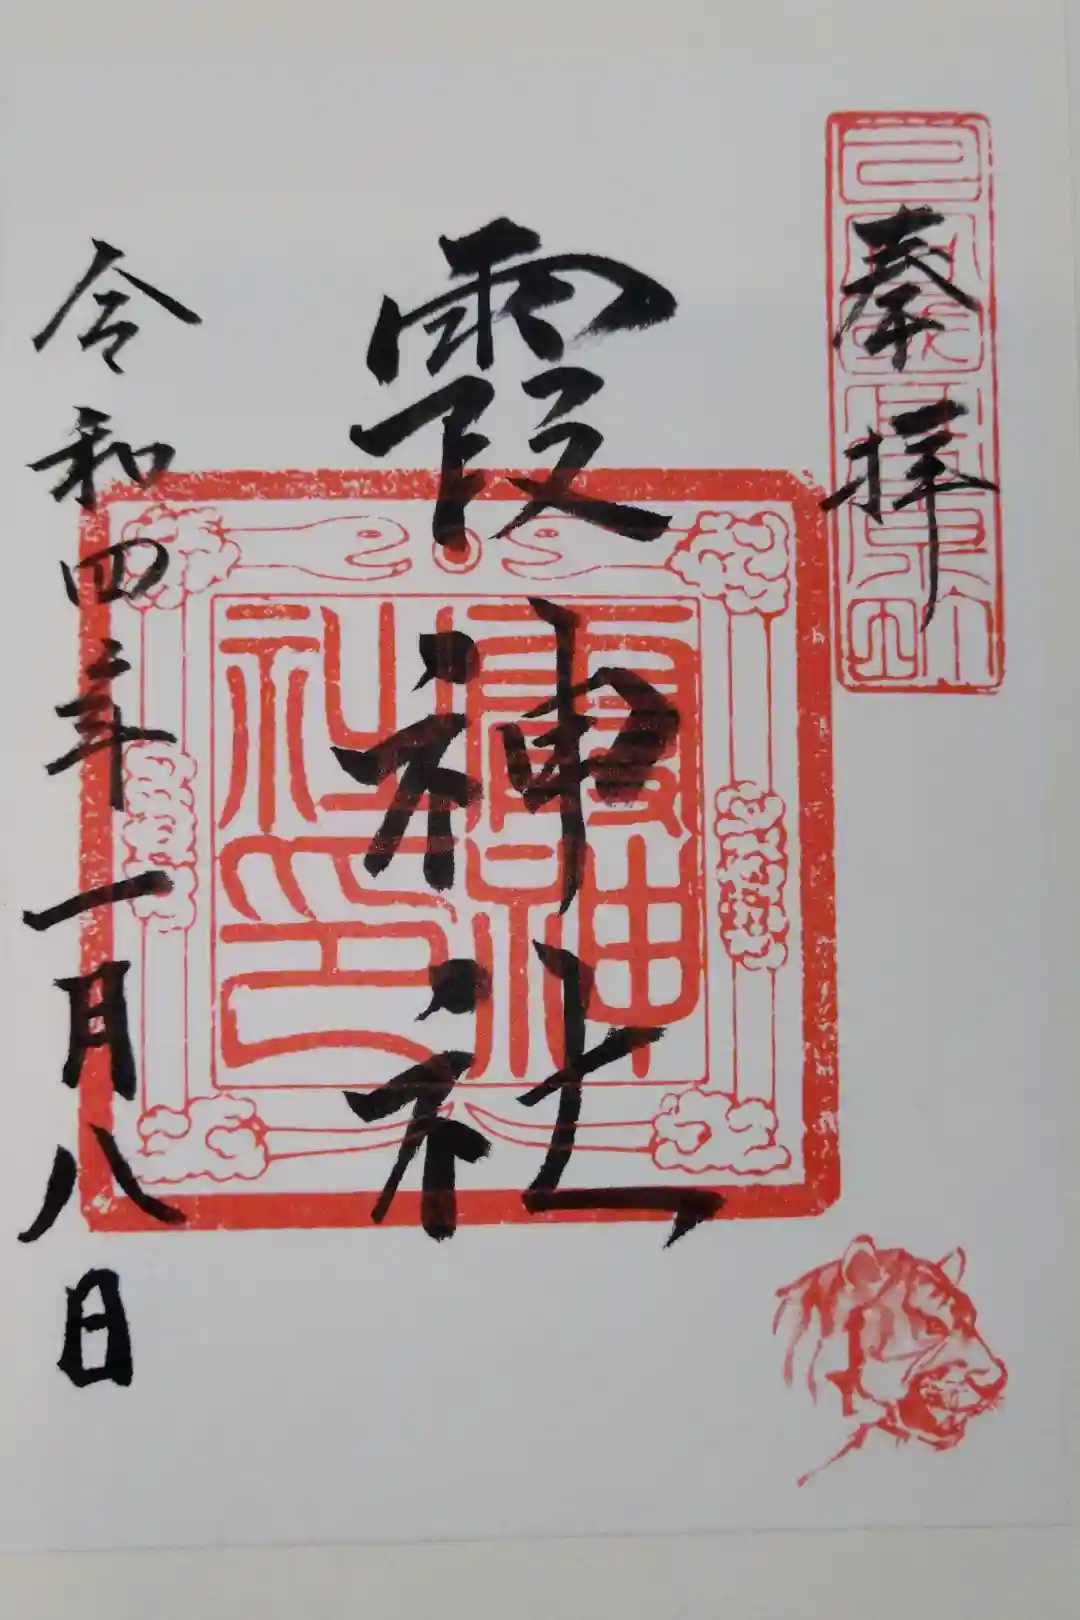 奉拝
霞神社
霞神
社印
令和四年一月八日